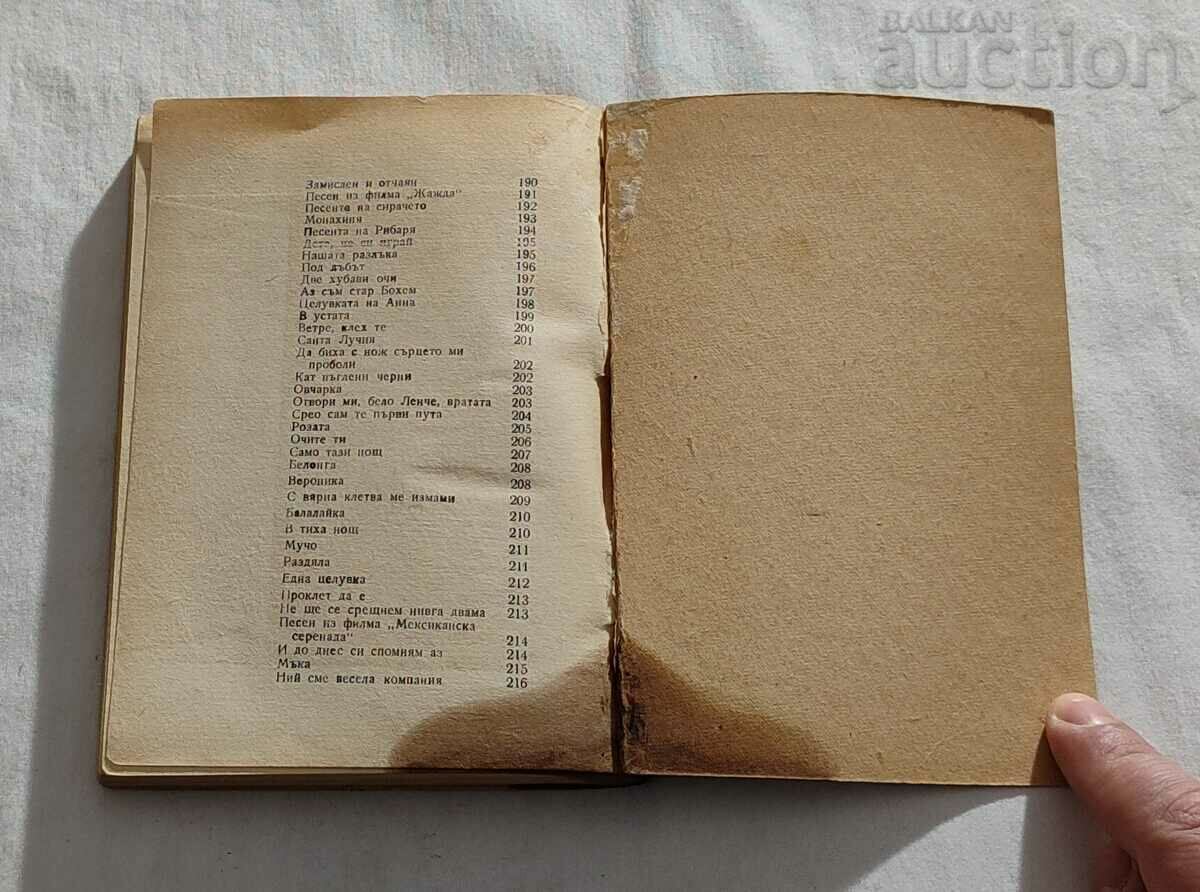 BALKAN
auction
Замислен и отчаян 190
Песен из филма „Жажда“ 191
Песента на сирачето 192
Монахиня 193
Песента на Рибаря 194
Дете, не си играй 195
Нашата разлъка 195
Под дъбът 196
Две хубави очи 197
Аз съм стар Бохем 197
Целувката на Анна 198
В устата 199
Ветре, клех те 200
Санта Лучия 201
Да биха с нож сърцето ми
проболи 202
Кат въглени черни 202
Овчарка 203
Отвори ми, бело Ленче, вратата 203
Срео сам те първи пута 204
Розата 205
Очите ти 206
Само тази нощ 207
Белонга 208
Вероника 208
С вярна клетва ме измами 209
Балалайка 210
В тиха нощ 210
Мучо 211
Раздяла 211
Една целувка 212
Проклет да е 213
Не ще се срещнем нивга двама 213
Песен из филма „Мексиканска
серенада“ 214
И до днес си спомням аз 214
Мъка 215
Ний сме весела компания 216